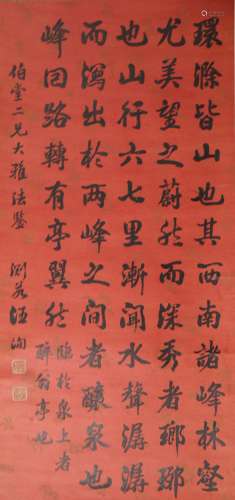 環滁皆山也其西南諸峰林壑
尤美望之蔚然而深秀者瑯琊
也山行六七里漸聞水聲潺潺
而瀉出於兩峰之間者釀泉也
峰回路轉有亭翼然
臨於泉上者
醉翁亭也
伯堂二兄大雅法鑒 渊若汪洵